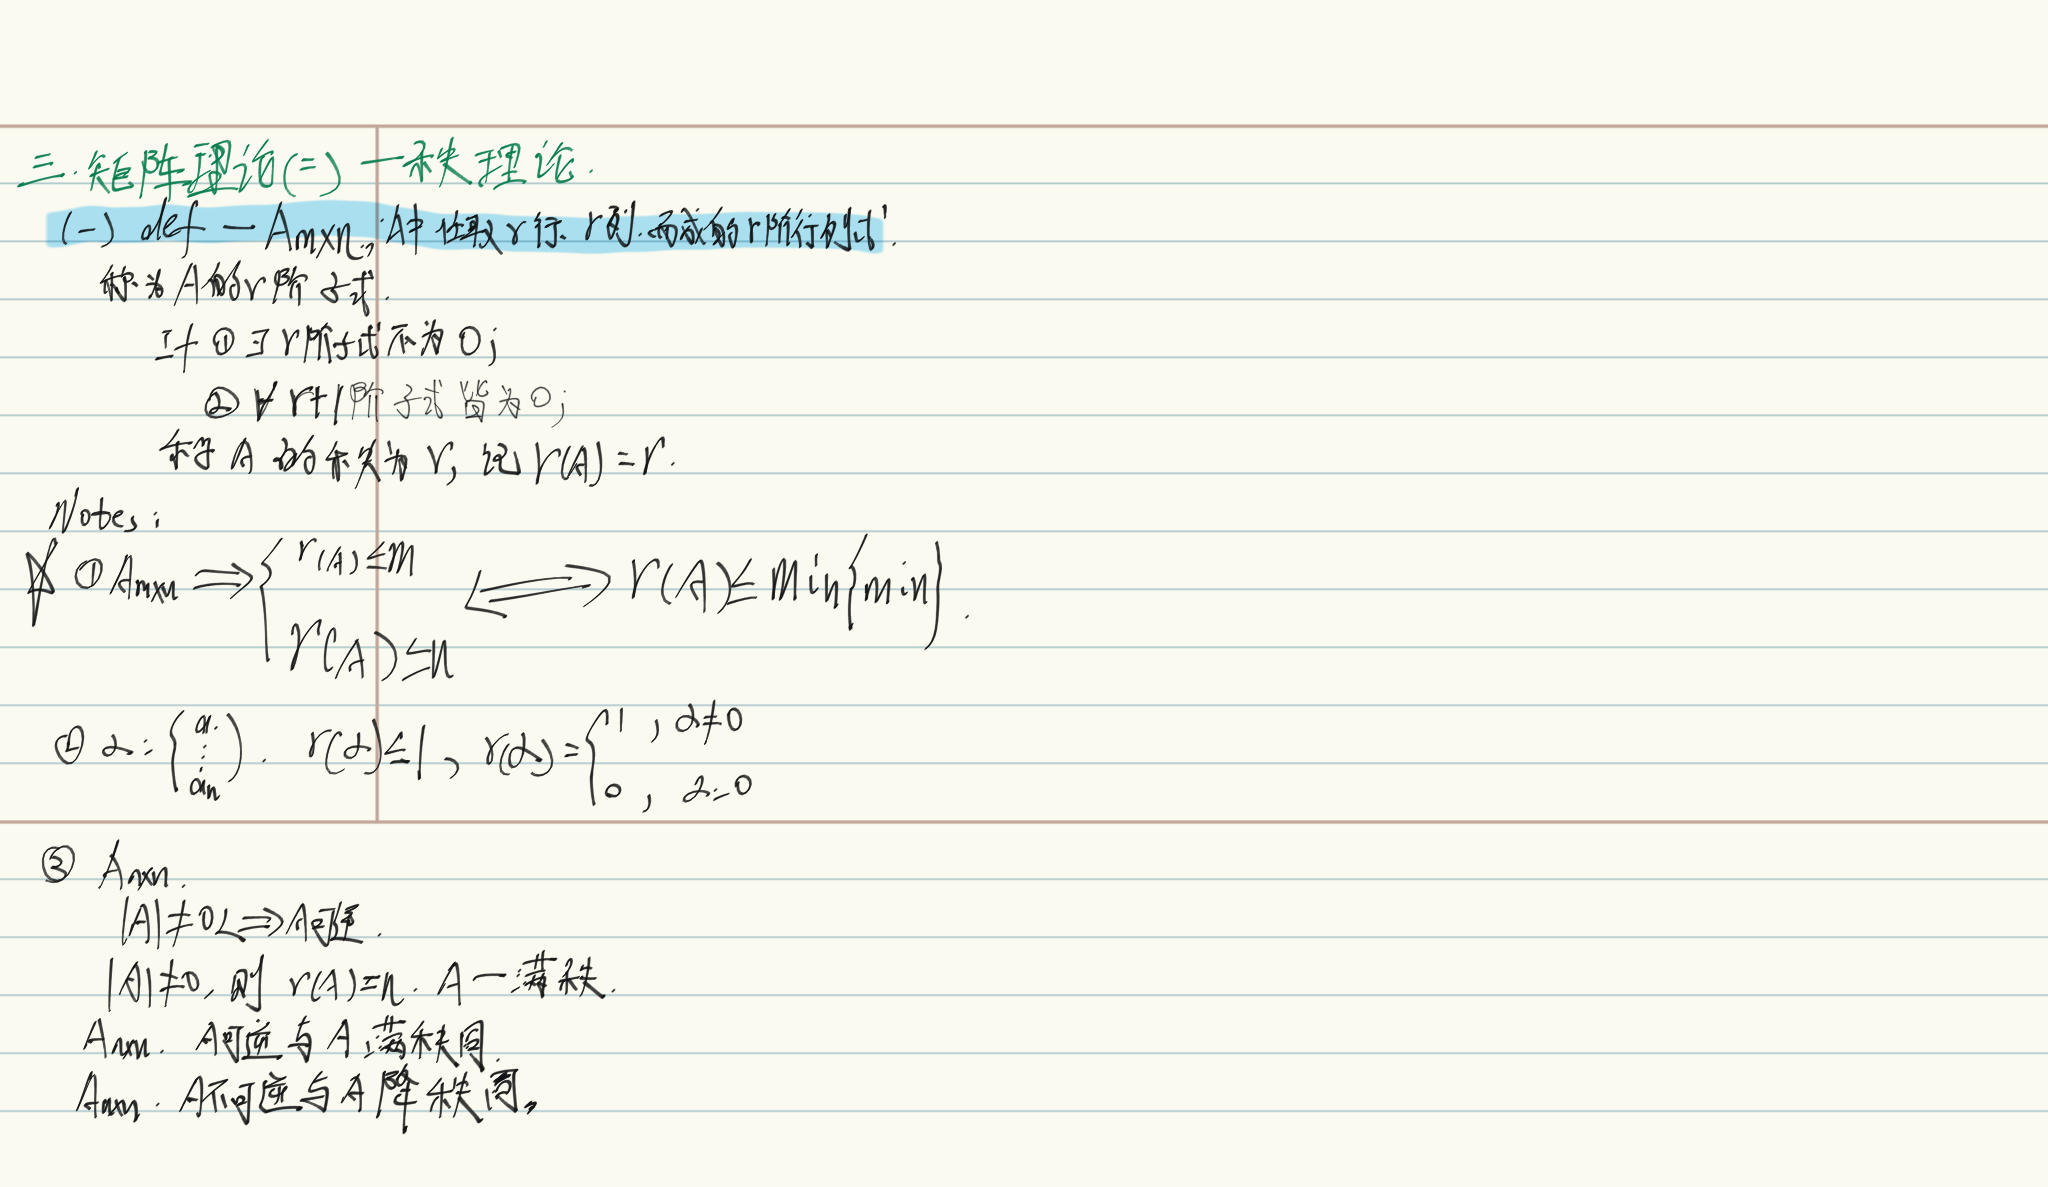 三.矩阵理论(二)—秩理论.
(一) def — Aₘₓₙ, A中任取r行、r列.而成的r阶行列式.
称为A的r阶子式.
If ① ∃ r阶子式不为0;
② ∀ r+1阶子式皆为0;
称A的秩为r, 记r(A)=r.
Notes:
☆ ① Aₘₓₙ ⟹ { r(A)≤m
r(A)≤n ⟺ r(A)≤min{min}.
② α=(a₁ ⋮ aₙ). r(α)≤1, r(α)={ 1, α≠0
0, α=0
③ Aₙₓₙ.
|A|≠0⟺A可逆.
|A|≠0, 则 r(A)=n. A—满秩.
Aₙₓₙ. A可逆与A满秩同.
Aₙₓₙ. A不可逆与A降秩同。